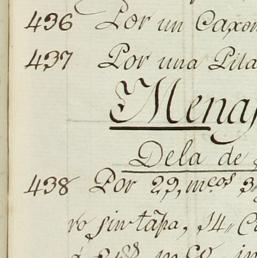 436 Por un Caxon
437 Por una Pila
Menag
Dela de
438 Por 29, m.cos 3
ro sin tapa, 14, C